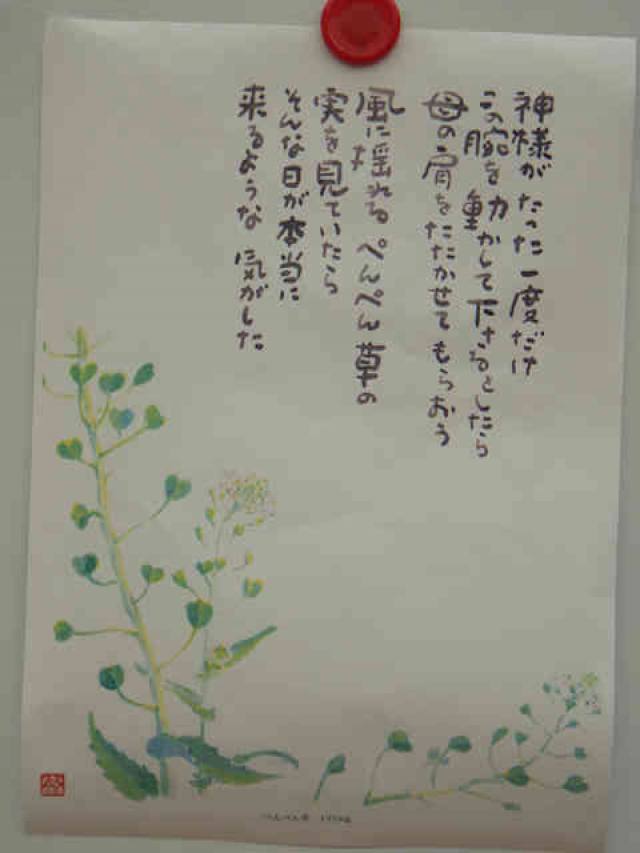 神様がたった一度だけ
この腕を動かして下さるとしたら
母の肩をたたかせてもらおう
風に揺れるぺんぺん草の
実を見ていたら
そんな日が本当に
来るような気がした
ぺんぺん草